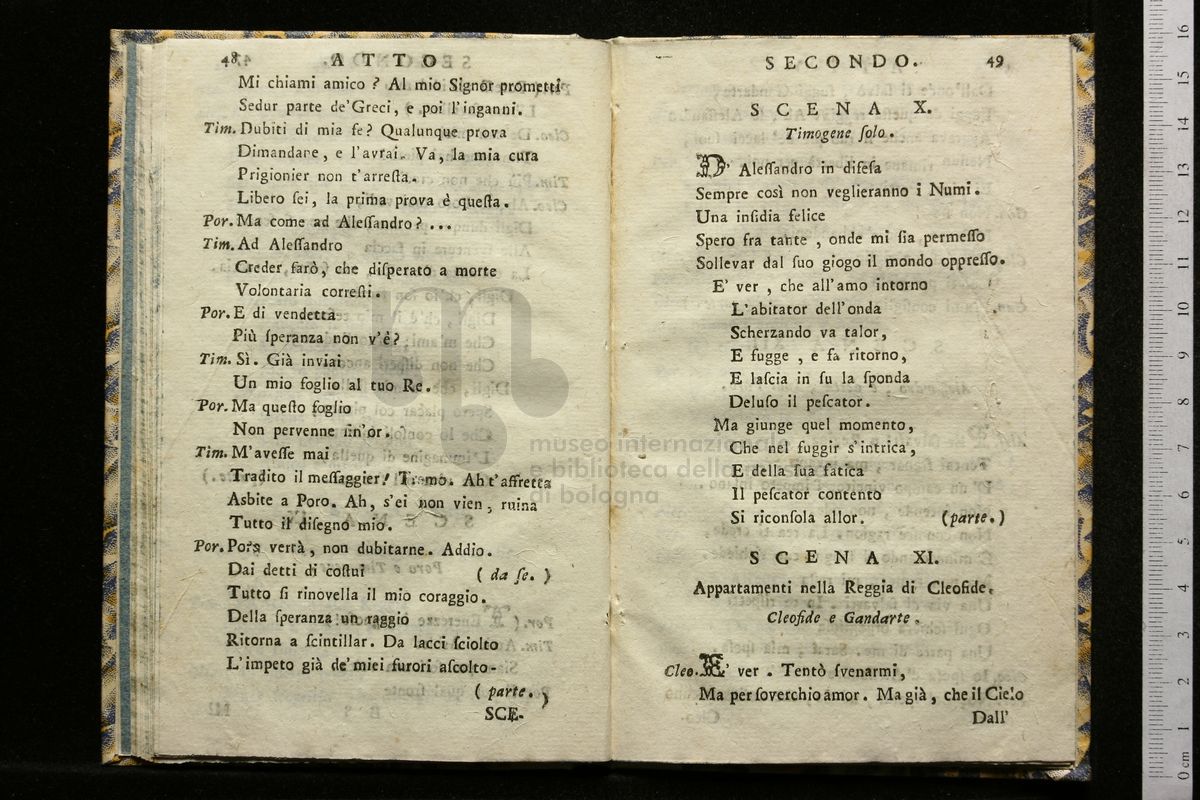 48 ATTO
Mi chiami amico? Al mio Signor prometti
Sedur parte de'Greci, e poi l'inganni.
Tim. Dubiti di mia fe? Qualunque prova
Dimandare, e l'avrai. Va, la mia cura
Prigionier non t'arreſta.
Libero ſei, la prima prova è queſta.
Por. Ma come ad Aleſſandro? ...
Tim. Ad Aleſſandro
Creder farò, che diſperato a morte
Volontaria correſti.
Por. E di vendetta
Più ſperanza non v'è?
Tim. Sì. Già inviai
Un mio foglio al tuo Re.
Por. Ma queſto foglio
Non pervenne ſin'or.
Tim. M'aveſſe mai
Tradito il meſſaggier! Tremo. Ah t'affretta
Asbite a Poro. Ah, s'ei non vien, ruina
Tutto il diſegno mio.
Por. Poro verrà, non dubitarne. Addio.
Dai detti di coſtui (da ſe.)
Tutto ſi rinovella il mio coraggio.
Della ſperanza un raggio
Ritorna a ſcintillar. Da lacci ſciolto
L'impeto già de'miei furori aſcolto-
(parte.)
SCE-
SECONDO. 49
SCENA X.
Timogene ſolo.
D' Aleſſandro in difeſa
Sempre così non veglieranno i Numi.
Una inſidia felice
Spero fra tante, onde mi ſia permeſſo
Sollevar dal ſuo giogo il mondo oppreſſo.
E' ver, che all'amo intorno
L'abitator dell'onda
Scherzando va talor,
E fugge, e fa ritorno,
E laſcia in ſu la ſponda
Deluſo il peſcator.
Ma giunge quel momento,
Che nel fuggir s'intrica,
E della ſua fatica
Il peſcator contento
Si riconſola allor. (parte.)
SCENA XI.
Appartamenti nella Reggia di Cleofide.
Cleofide e Gandarte.
Cleo. E' ver. Tentò ſvenarmi,
Ma per ſoverchio amor. Ma già, che il Cielo
Dall'
museo internazionale
e biblioteca della musica
di bologna
0 cm 1 2 3 4 5 6 7 8 9 10 11 12 13 14 15 16